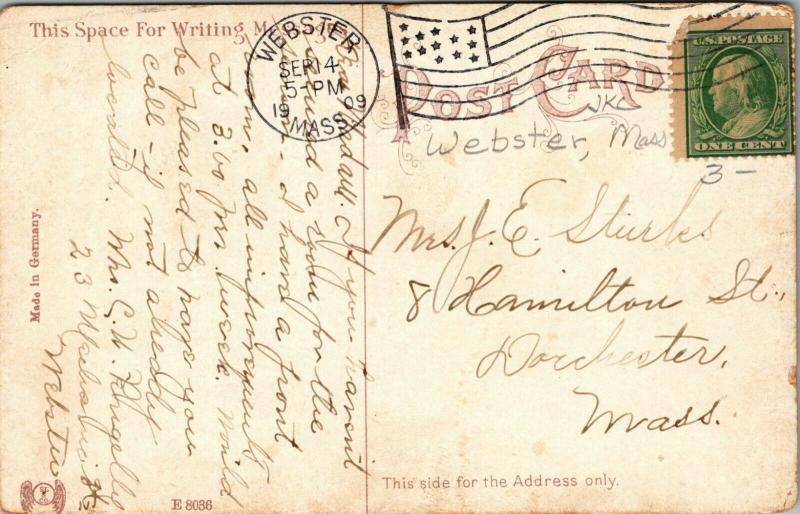 This Space For Writing M
POST CARD
WEBSTER
SEP 14
5-PM
1909
MASS.
U.S. POSTAGE
ONE CENT
JKC
Webster, Mass
3 -
If you haven't
secured a room for the
I have a front
room, all improvements
at 3.00 per week. Would
be pleased to have you
call - if not already
located. Mrs. E. H.
23
Webster
Mrs. J. E. Sturks
8 Hamilton St.,
Dorchester,
Mass.
Made in Germany.
E 8036
This side for the Address only.